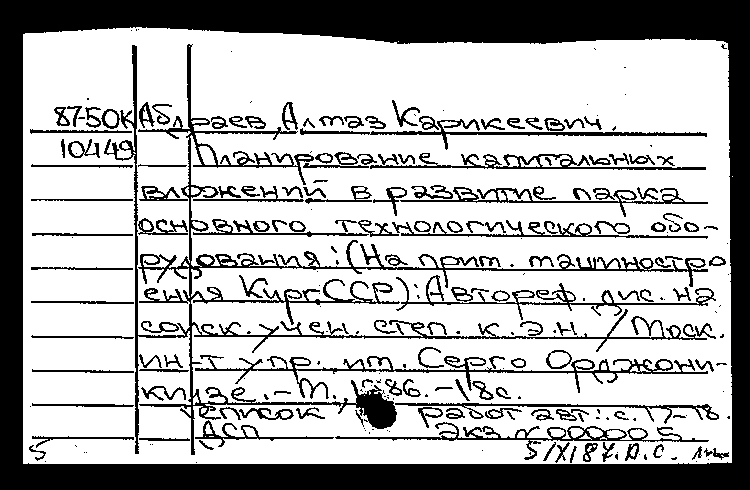 87-50К Абдраев, Алмаз Карикеевич.
10449 Планирование капитальных
вложений в развитие парка
основного технологического обо-
рудования: (На прим. машиностро
ения Кирг.ССР): Автореф. дис. на
соиск. учен. степ. к.э.н. / Моск.
ин-т упр. им. Серго Орджони-
кидзе. - М., 1986. - 18с.
Список работ авт.: с. 17-18.
ДСП. Экз. №000005.
5 5/XI87. Д.С.